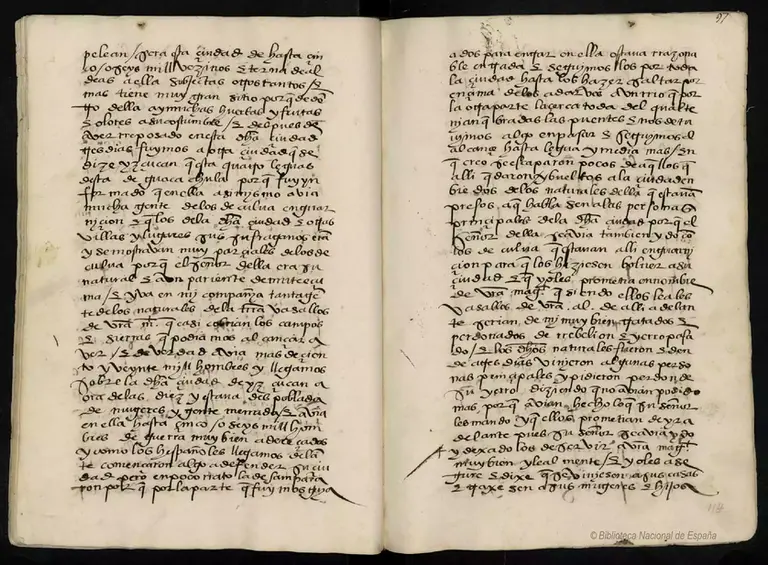 pelean / sera esta çiudad de hasta çin
co / o seys mill vezinos e terna de al
deas a ella subjetas otros tantos / e
mas tiene muy gran sitio porque de den
tro della ay muchas huertas y frutas
e olores a du costumbre / e despues de
aver reposado en esta dha çiudad
tres dias fuymos a otra çiudad que se
dize yzcucan questa quatro leguas
desta de guacachula porque fuy yn
formado que en ella asimismo avia
mucha gente de los de culua en guar
niçion e que los de la dha çiudad e otras
villas y lugares sus sufraganos eran
y se mostravan muy parçiales de los de
culua porque el señor della era su
natural e aun pariente de muteecu
ma / e yva en mi compañia tanta gen
te de los naturales de la trra vasallos
de vra m. que casi cobrian los campos
e sierras que podiamos alcançar a
ver / e de verdad avia mas de çien
to y veynte mill hombres e llegamos
sobre la dha çiudad de yzcucan a
ora de las diez y estava despoblada
de mugeres y gente menuda / e avia
en ella hasta çinco / o seys mill hom
bres de guerra muy bien adereçados
y como los hespañoles llegamos delan
te començaron algo a defender su çiu
dad pero en poco rato la desampara
ron porque por la parte que fuymos guya
97
ados para entrar en ella estava razona
ble entrada e seguimos los por toda
la çiudad hasta los hazer saltar por
ençima de los adarves a un rio que por
la otra parte la çerca toda del qual te
nian quebradas las puentes e nos detu
uymos algo en pasar e seguymos el
alcançe hasta legua y media mas / en
que creo se escaparon pocos de aquellos que
alli quedaron y bueltos a la çiudad en
bie dos de los naturales della que estavan
presos a que hablasen a las personas
prinçipales de la dha çiudad porque el
señor della se avia tambien ydo co
los de culua que estavan alli en guarni
çion para que los hiziesen bolver a su
çiudad e que yo les prometia en nombre
de vra magt. que siendo ellos leales
vasallos de vra. al. de alli adelan
te serian de mi muy bien tratados e
perdonados de rebelion e yerro pasa
do / e los dhos naturales fueron e den
de a tres dias vinieron algunas perso
nas prinçipales y pidieron perdon de
su yerro diziendo que no avian podido
mas porque avian hecho lo que su señor
les mando y que ellos prometian de y ra
delante pues su señor se avia ydo
y dexado los de servir a vra magt.
muy bien y leal mente / e yo les ase
gure e dixe que se viniesen a sus casas
e traxesen a sus mugeres e hijos
© Biblioteca Nacional de España